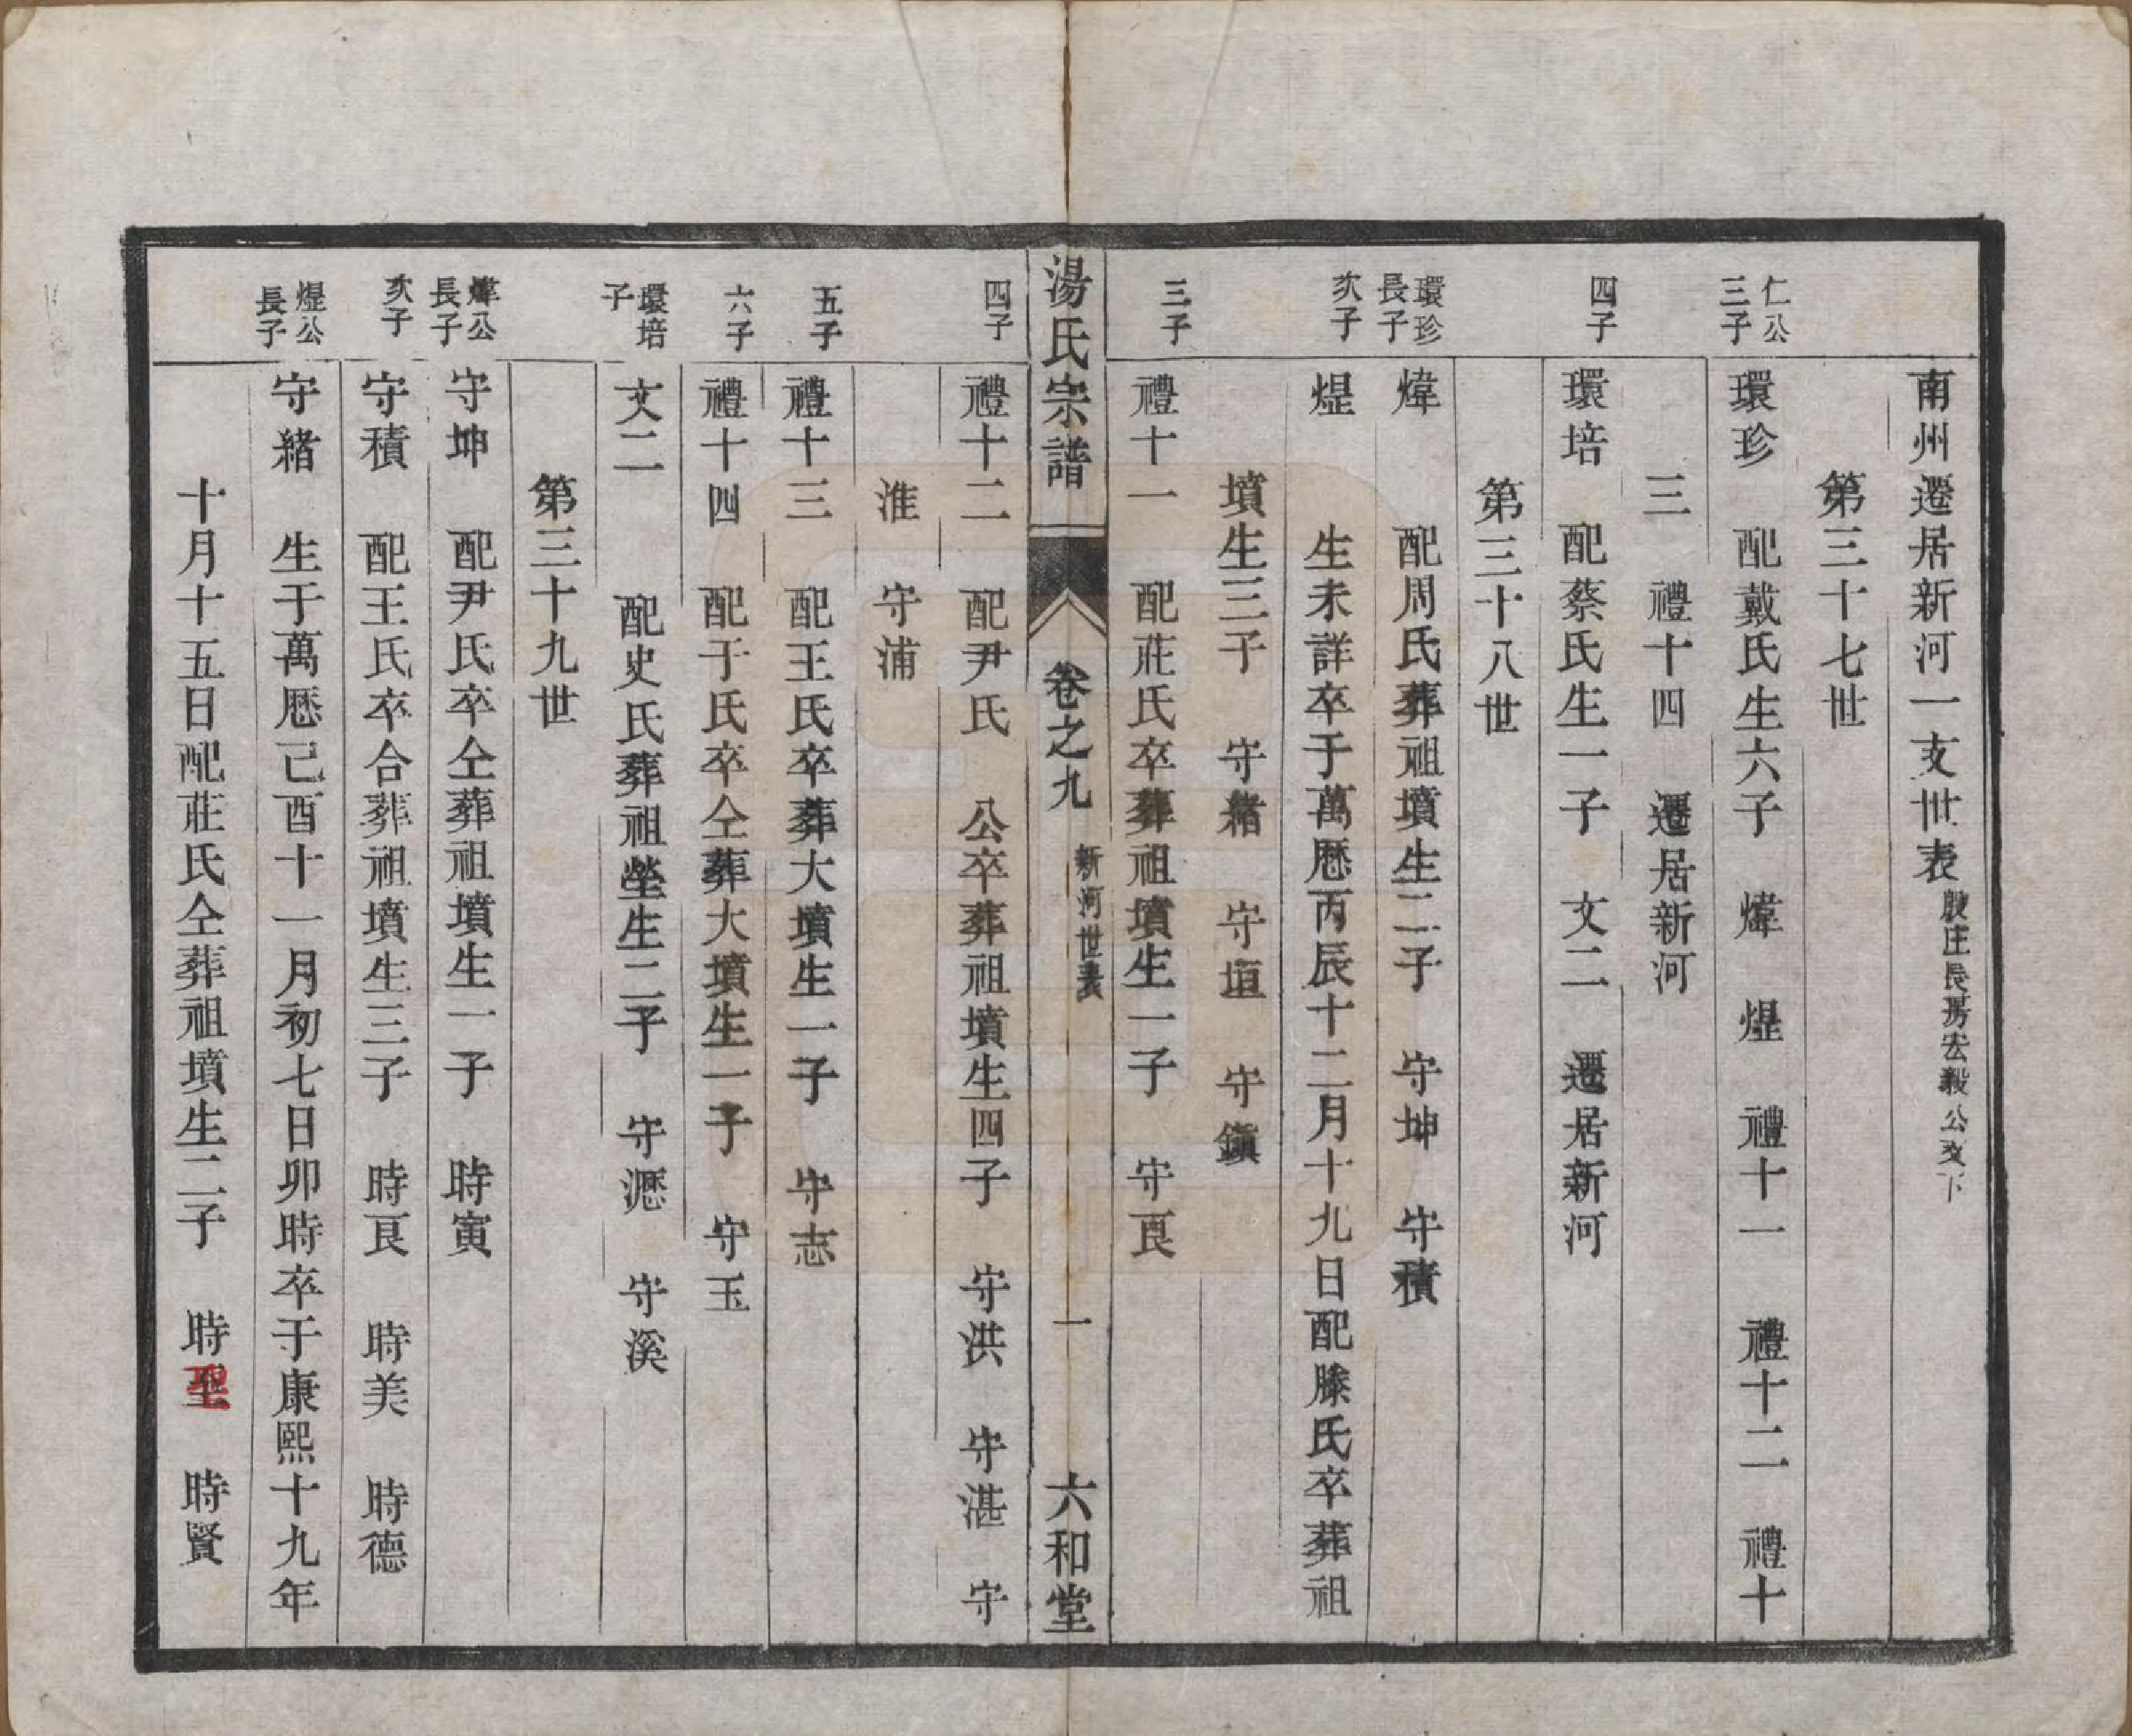 南州遷居新河一支世表殷庄長房宏毅公支下
第三十七世
仁公三子
環珍　配戴氏生六子　煒　煋　禮十一　禮十二　禮十
三　禮十四　遷居新河
四子
環培　配蔡氏生一子　文二　遷居新河
第三十八世
環珍長子
煒　配周氏葬祖墳生二子　守坤　守積
次子
煋　生未詳卒于萬厯丙辰十二月十九日配滕氏卒葬祖
墳生三子　守緒　守垣　守鎭
三子
禮十一　配莊氏卒葬祖墳生一子　守艮
湯氏宗譜　卷之九　新河世表　一　六和堂
四子
禮十二　配尹氏　公卒葬祖墳生四子　守洪　守湛　守
淮　守浦
五子
禮十三　配王氏卒葬大墳生一子　守志
六子
禮十四　配于氏卒仝葬大墳生一子　守玉
環培子
文二　配史氏葬祖塋生二子　守瀝　守溪
第三十九世
煒公長子
守坤　配尹氏卒仝葬祖墳生一子　時寅
次子
守積　配王氏卒合葬祖墳生三子　時艮　時美　時德
煋公長子
守緒　生于萬厯己酉十一月初七日卯時卒于康熙十九年
十月十五日配莊氏仝葬祖墳生二子　時聖　時賢